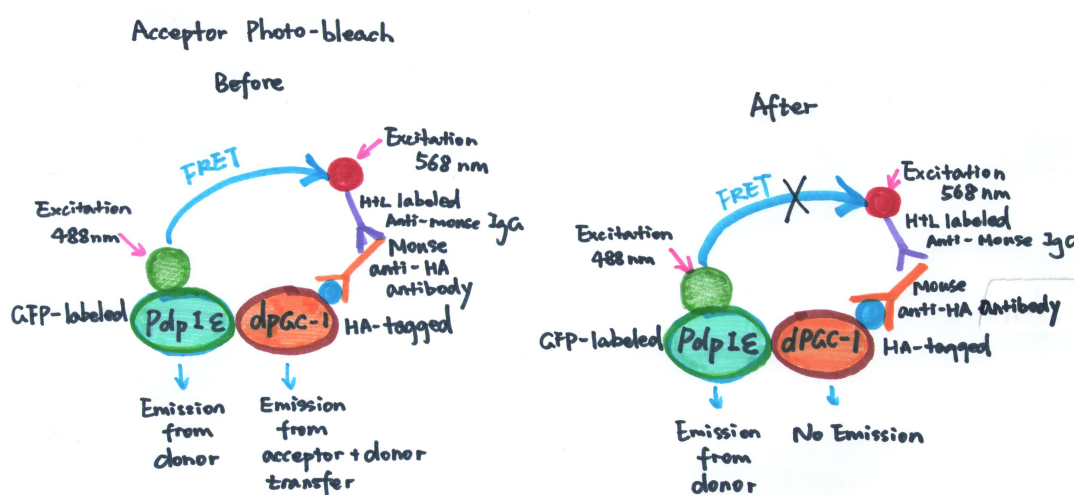 Acceptor Photo-bleach
Before
FRET
Excitation
568 nm
H+L labeled
Anti-mouse IgG
Mouse
anti-HA
antibody
Excitation
488nm
GFP-labeled
Pdp1ε
dPGC-1
HA-tagged
Emission
from
donor
Emission
from
acceptor + donor
transfer
After
FRET
X
Excitation
568nm
H+L labeled
Anti-Mouse IgG
Mouse
anti-HA antibody
Excitation
488nm
GFP-labeled
Pdp1ε
dPGC-1
HA-tagged
Emission
from
donor
No Emission